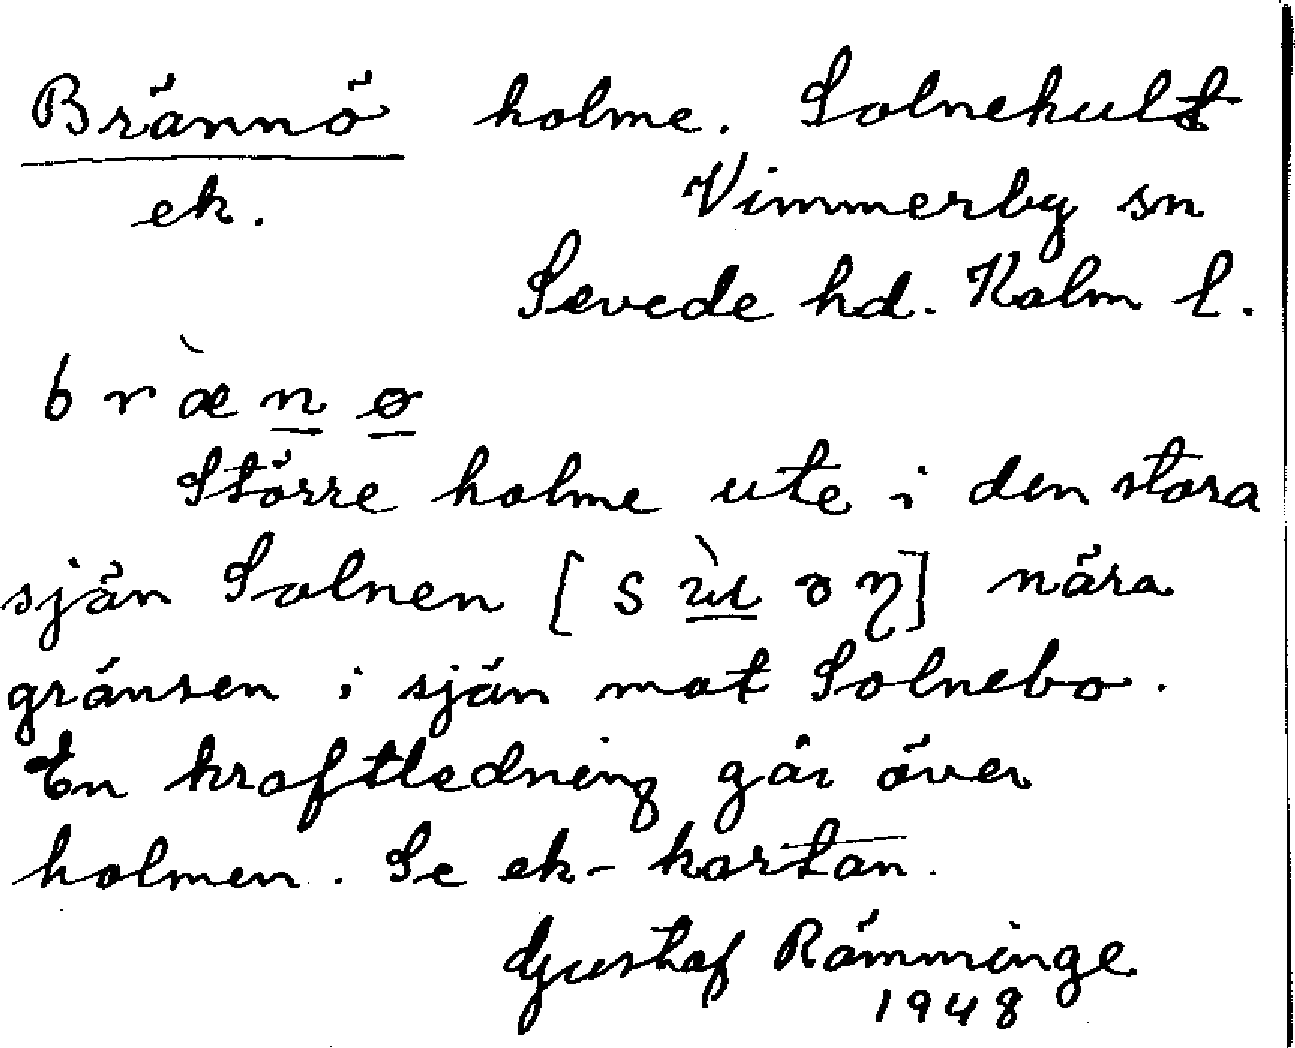 Brännö holme. Solnehult
ek. Vimmerby sn
Sevede hd. Kalm l.
bræ̀nø
Större holme ute i den stora
sjön Solnen [ ] nära
gränsen i sjön mot Solnebo.
En kraftledning går över
holmen. Se ek-kartan.
Gustaf Rämminge
1948